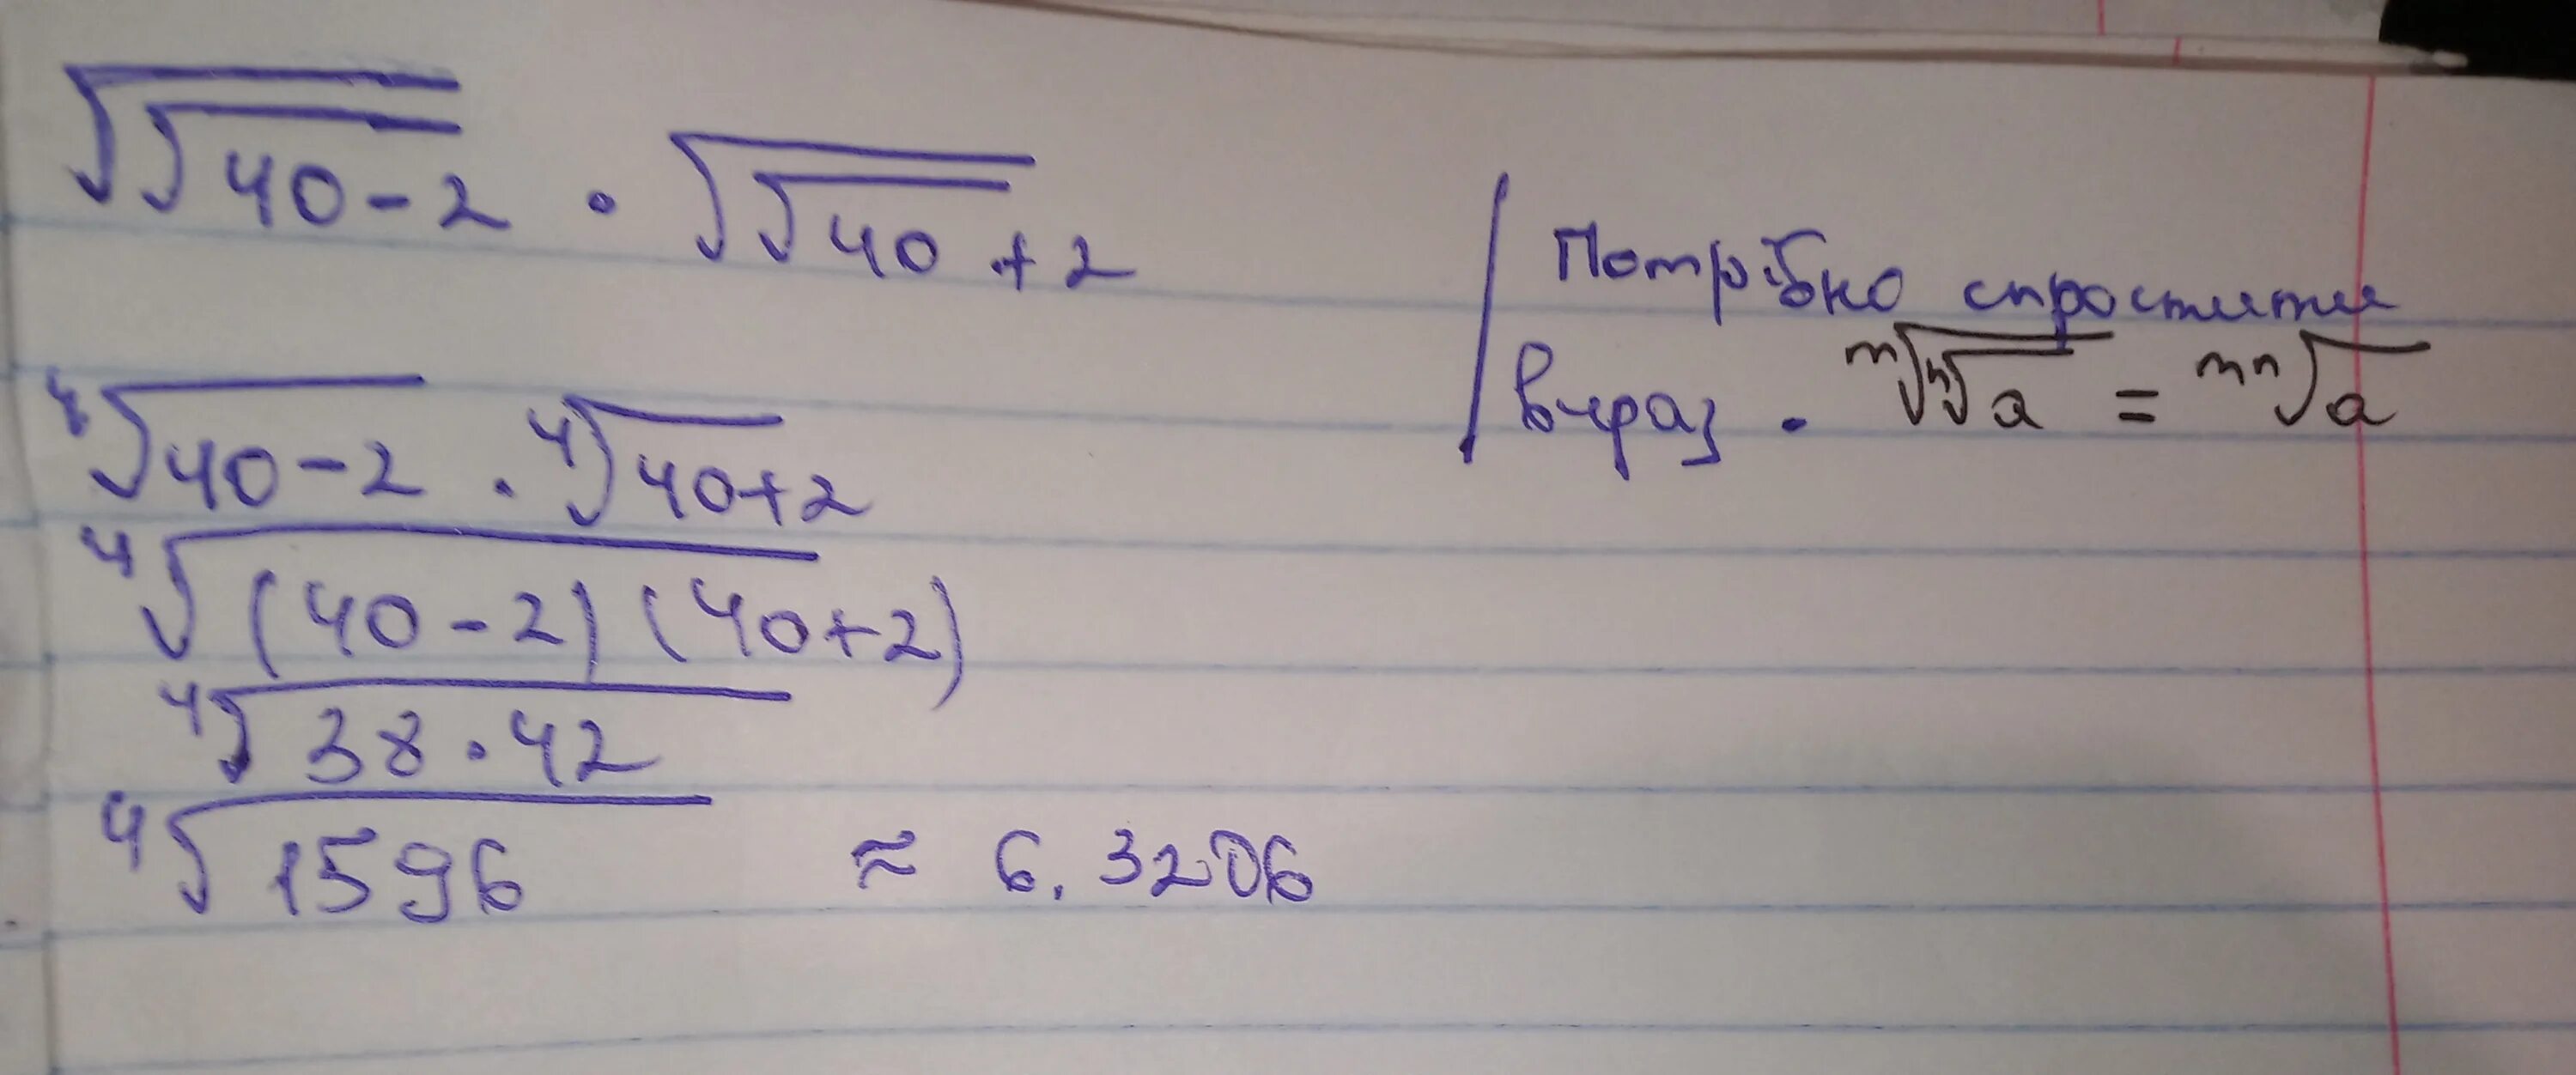 √√40-2 · √√40 + 2
Потрібно спростити
вираз. ᵐ√ⁿ√a = ᵐⁿ√a
⁴√40-2 · ⁴√40+2
⁴√(40-2)(40+2)
⁴√38·42
⁴√1596 ≈ 6.3206